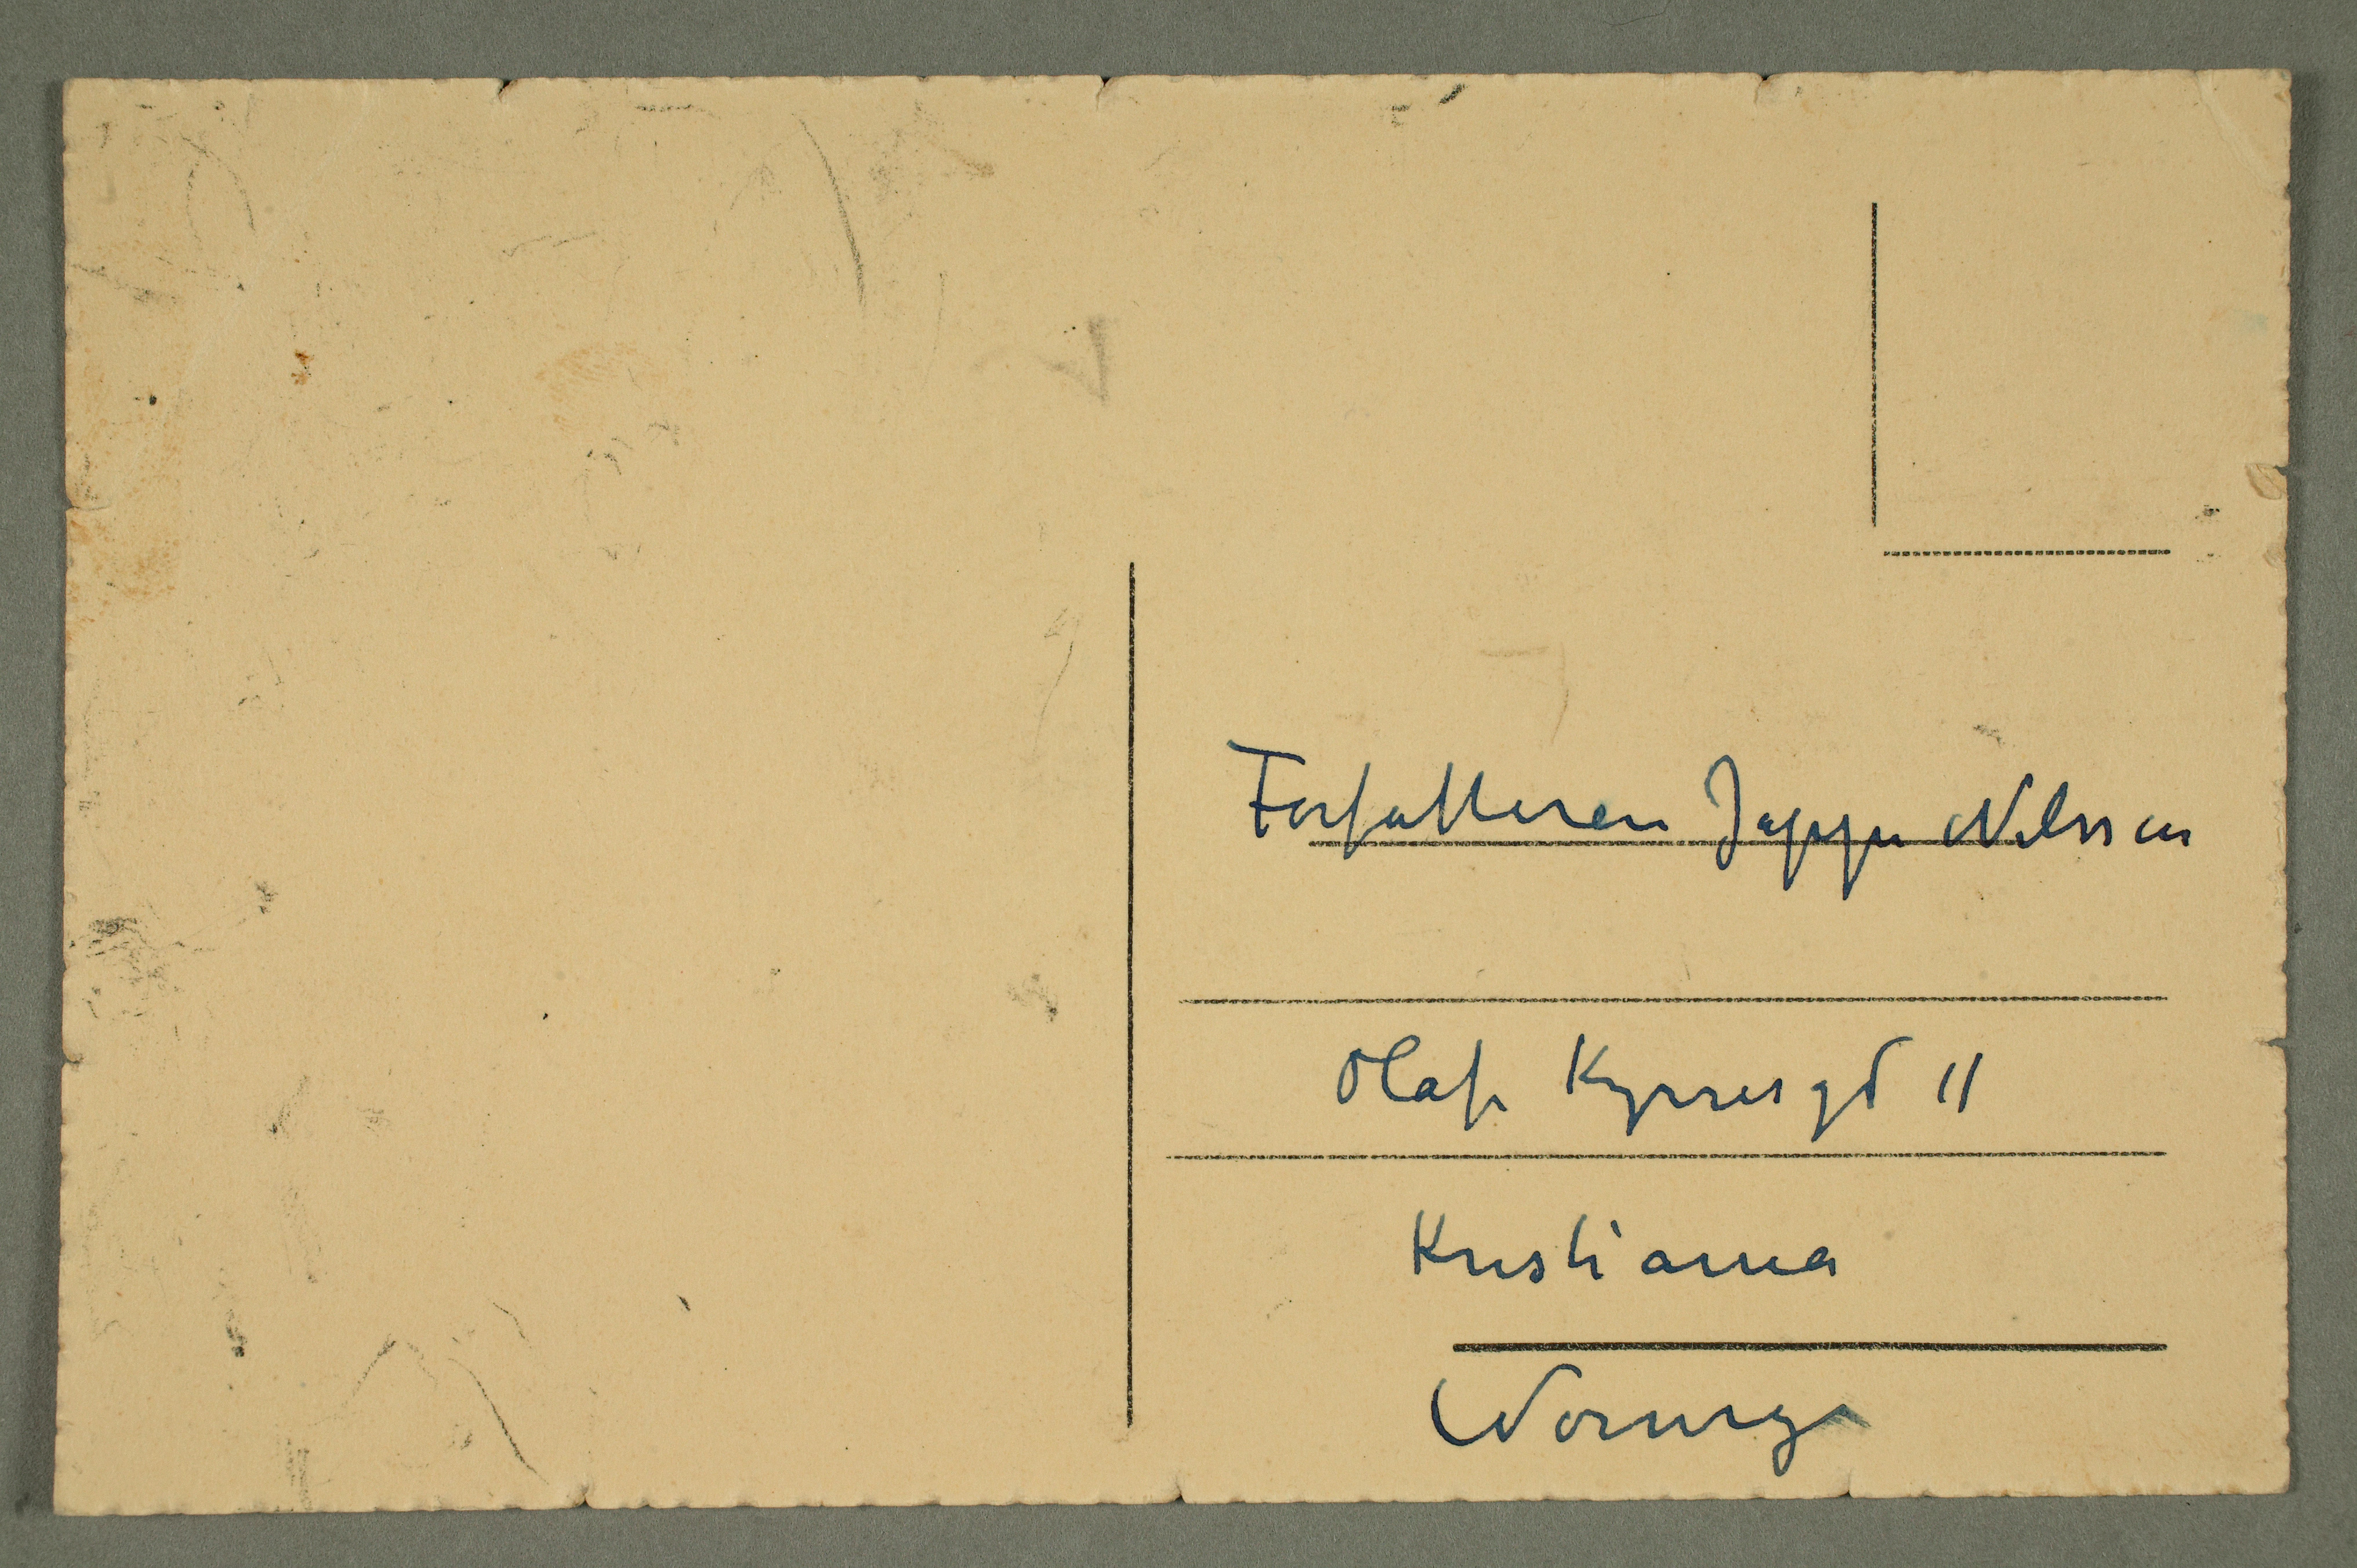 Forfatteren Jappe Nilssen
Olafs Kyrresgd 11
Kristiania
Norwege